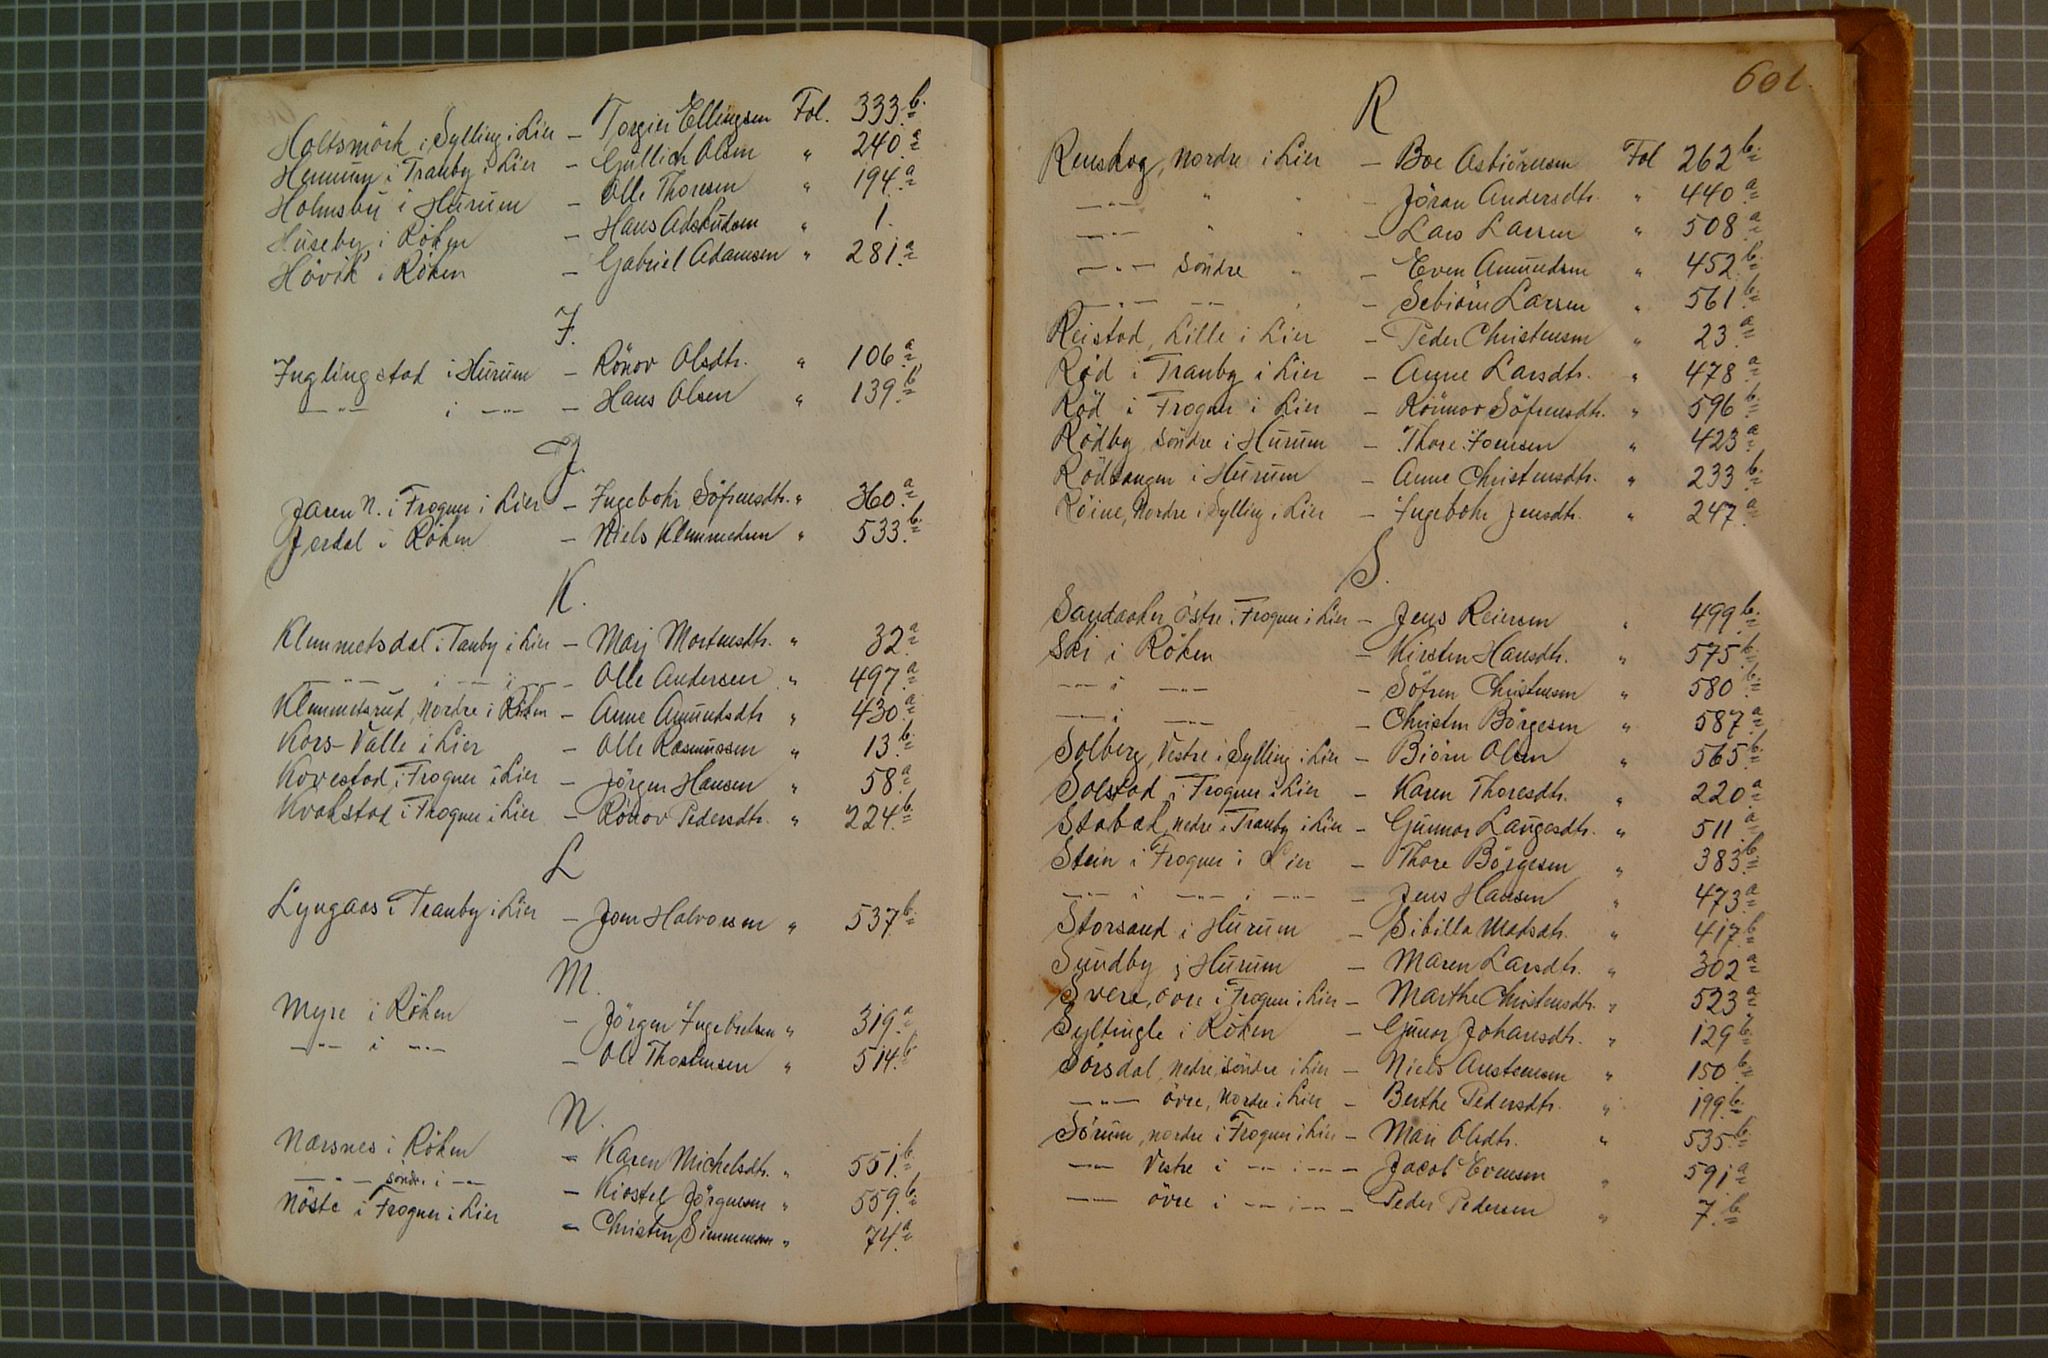 Holtsmörk i Sylling i Lier – Torgier Ellingsen Fol. 333.b.
Hennum i Tranby i Lier – Gullich Olsen " 240.a
Holmsbu i Hurum – Olle Thoresen " 194.a
Huseby i Röken – Hans Adskudsen " 1.
Hövik i Röken – Gabriel Adamsen " 281.a
I.
Inglingstad i Hurum – Rönov Olsdtr. " 106.a
—"— i —"— – Hans Olsen " 139.b
J.
Jaren N. i Frogner i Lier – Ingebohr Söfrensdtr. " 360.a
Jerdal i Röken – Niels Klemmedsen " 533.b.
K.
Klemmetsdal i Tanby i Lier – Marj Mortensdtr. " 32.a
—"— i —"— i —"— – Olle Andersen " 497.a
Klemmetsrud, Nordre i Röken – Anne Amundsdtr " 430.a
Kors-Valle i Lier – Olle Rasmussen " 13.b.
Kovestad i Frogner i Lier – Jörgen Hansen " 58.a
Kvakstad i Frogner i Lier – Rönov Pedersdtr. " 224.b.
L
Lyngaas i Tranby i Lier – Joen Halvorsen " 537.b.
M.
Myre i Röken – Jörgen Ingebretsen " 319.a
—"— i —"— – Ole Thostensen " 514.b.
N.
Nærsnes i Röken – Karen Michelsdtr. " 551.b.
—"— söndre i —"— – Kiostel Jörgensen " 559.b.
Nöste i Frogner i Lier – Christen Simmensen " 74.a
601.
R
Renskog, Nordre i Lier – Boe Asbiörnsen Fol 262 b.
—"— " " – Jöran Andersdtr. " 440.a
—"— " " – Lars Larsen " 508.a
—"— Söndre " – Even Amundsen " 452.b.
—"— —"— " – Sebiörn Larsen " 561.b.
Reistad, Lille i Lier – Peder Christensen " 23.a
Röd i Tranby i Lier – Anne Larsdtr. " 478.a
Röd i Frogner i Lier – Rönnov Söfrensdtr. " 596.b.
Rödby, söndre i Hurum – Thore Joensen " 423.a
Rödtangen i Hurum – Anne Christensdtr. " 233.b.
Röine, Nordre i Sylling i Lier – Ingebohr Jensdtr. " 247.a
S.
Sandaaker Östre i Frogner i Lier – Jens Reiersen " 499.b.
Ski i Röken – Kirsten Hansdtr. " 575.b.
—"— i —"— – Söfren Christensen " 580.b.
—"— i —"— – Christen Börgesen " 587.a
Solberg, Vestre i Sylling i Lier – Biörn Olsen " 565.b.
Solstad i Frogner i Lier – Karen Thoresdtr. " 220.a
Stabæk, nedre i Tranby i Lier – Gunnor Laugesdtr. " 511.a
Stein i Frogner i Lier – Thore Börgesen " 383.b.
—"— i —"— i —"— – Jens Hansen " 473.a
Storsand i Hurum – Sibilla Madsdtr. " 417.b
Sundby i Hurum – Maren Larsdtr. " 302.a
Svere, övre i Frogner i Lier – Marthe Christensdtr. " 523.a
Syltingle i Röken – Gunor Johansdtr. " 129.b.
Sörsdal, nedre, söndre i Lier – Niels Austensen " 150.b.
—"— övre, Nordre i Lier – Berthe Pedersdtr. " 199.b.
Sörum, nordre i Frogner i Lier – Mari Olsdtr. " 535.b.
—"— Vestre i —"— i —"— – Jacob Evensen " 591.a
—"— övre i —"— i —"— – Peder Pedersen " 7.b